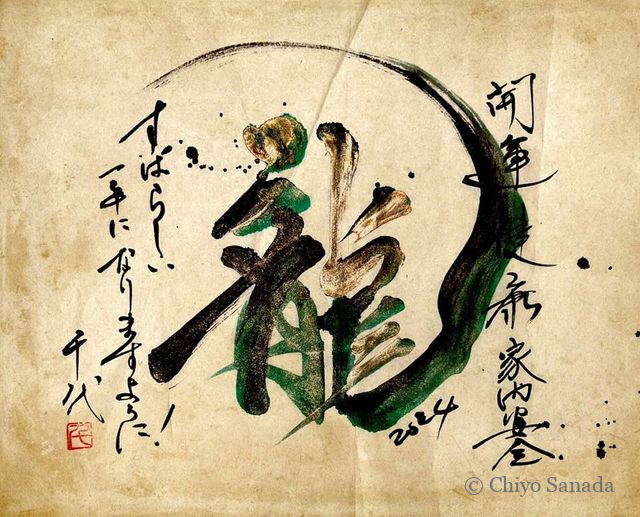 開運 健康 家内安全
龍
2024
すばらしい
一年に
なりますように!
千代
© Chiyo Sanada